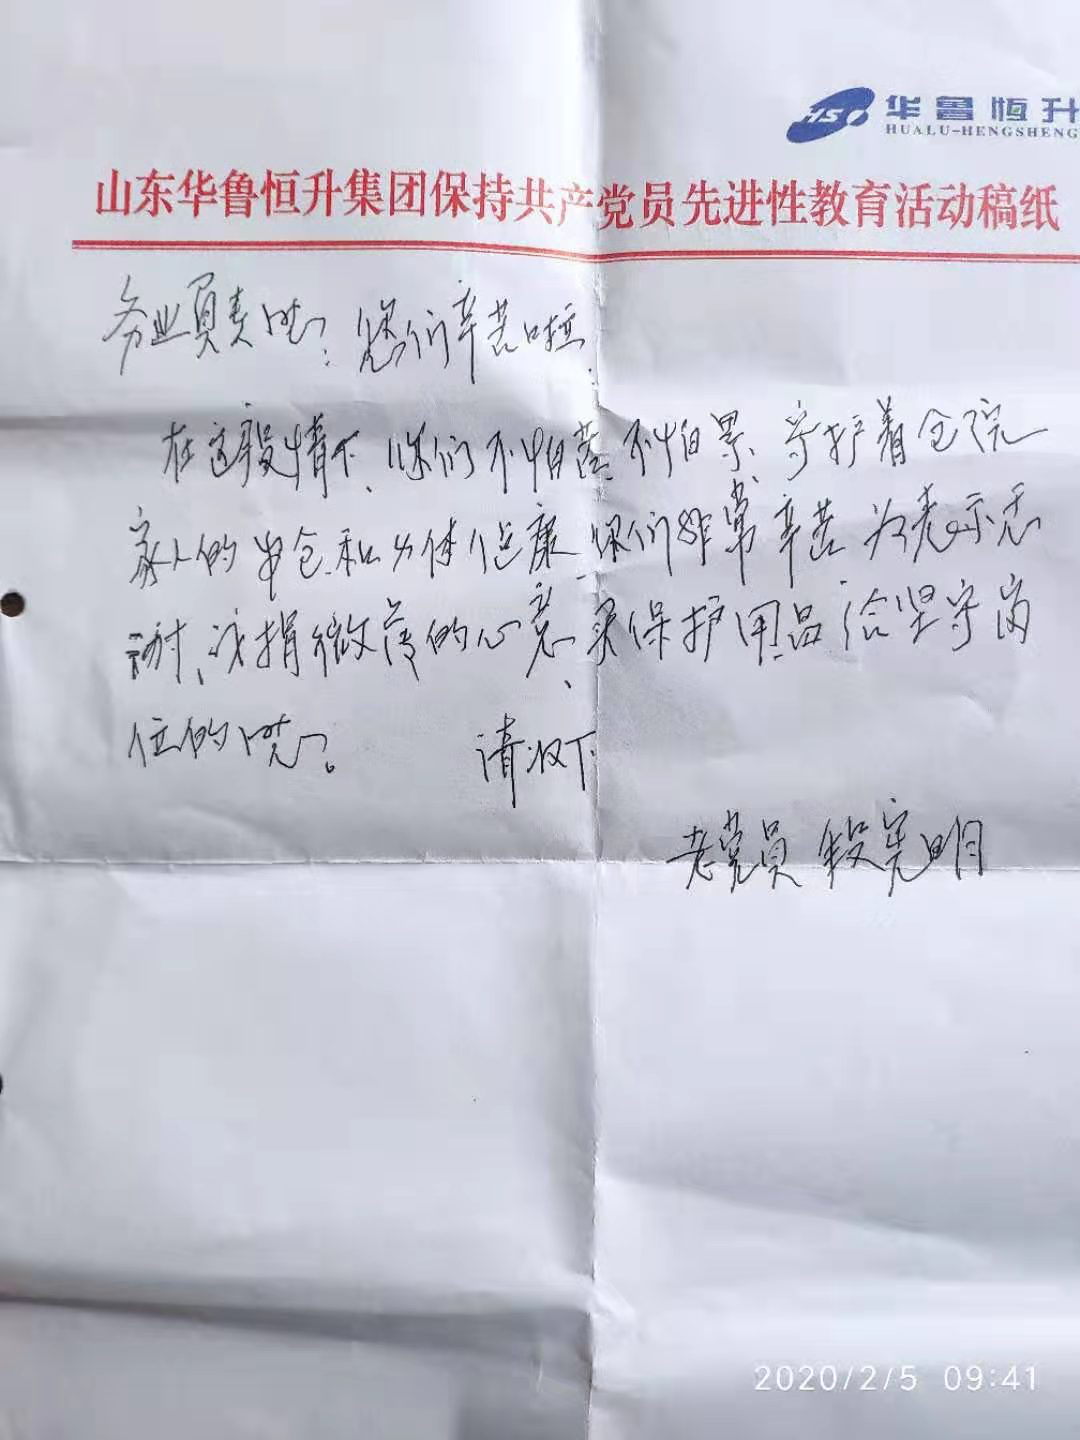 华鲁恒升
HUALU-HENGSHENG
山东华鲁恒升集团保持共产党员先进性教育活动稿纸
务业负责同: 您们辛苦啦
在这段情下、你们不怕苦、不怕累、守护着全院
家人的安全和身体健康、你们非常辛苦 为表示感
谢、我捐微薄的心意、买保护用品给坚守岗
位的同。 请收下
老党员 段宪明
2020/2/5 09:41